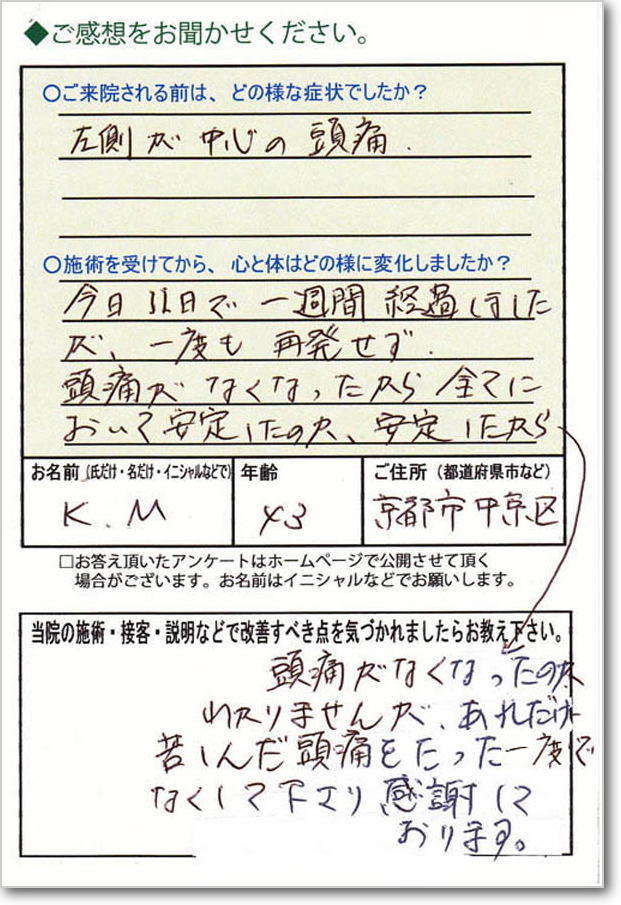 ◆ご感想をお聞かせください。
○ご来院される前は、どの様な症状でしたか？
左側が中心の頭痛.
○施術を受けてから、心と体はどの様に変化しましたか？
今日31日で一週間経過しました
が、一度も再発せず.
頭痛がなくなったから全てに
おいて安定したのか、安定したから
お名前（氏だけ・名だけ・イニシャルなどで） 年齢 ご住所（都道府県市など）
K.M 43 京都市中京区
□お答え頂いたアンケートはホームページで公開させて頂く
場合がございます。お名前はイニシャルなどでお願いします。
当院の施術・接客・説明などで改善すべき点を気づかれましたらお教え下さい。
頭痛がなくなったのか
わかりませんが、あれだけ
苦しんだ頭痛をたった一度で
なくして下さり感謝して
おります。